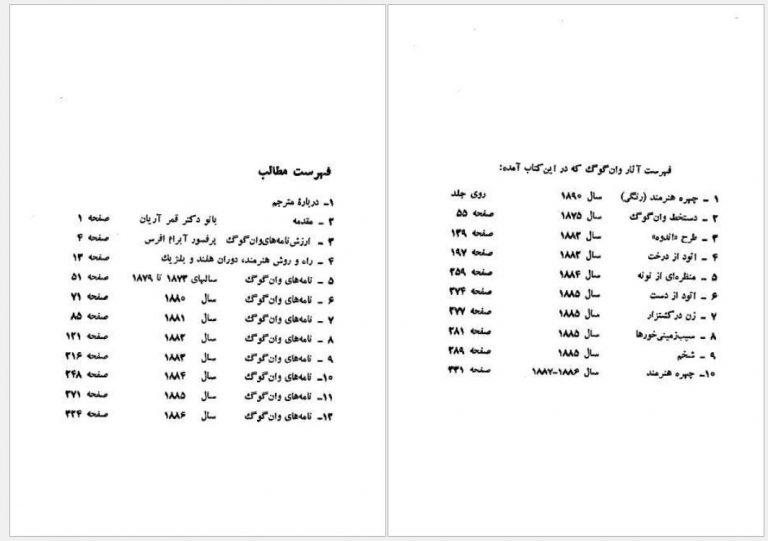 فهرست آثار وان‌گوگ که در این‌کتاب آمده:
۱ ـ چهره هنرمند (رنگی) سال ۱۸۹۰ روی جلد
۲ ـ دستخط وان‌گوگ سال ۱۸۷۵ صفحه ۵۵
۳ ـ طرح «اندوه» سال ۱۸۸۲ صفحه ۱۳۹
۴ ـ اتود از درخت سال ۱۸۸۲ صفحه ۱۹۷
۵ ـ منظره‌ای از نونه سال ۱۸۸۴ صفحه ۲۵۹
۶ ـ اتود از دست سال ۱۸۸۵ صفحه ۲۷۴
۷ ـ زن درکشتزار سال ۱۸۸۵ صفحه ۲۷۷
۸ ـ سیب‌زمینی‌خورها سال ۱۸۸۵ صفحه ۲۸۱
۹ ـ شخم سال ۱۸۸۵ صفحه ۲۸۹
۱۰ـ چهره هنرمند سال ۱۸۸۶-۱۸۸۷ صفحه ۳۳۱
فهرست مطالب
۱ـ دربارهٔ مترجم
۲ ـ مقدمه بانو دکتر قمر آریان صفحه ۱
۳ ـ ارزش‌نامه‌های‌وان‌گوگ پرفسور آبراام افرس صفحه ۴
۴ ـ راه و روش هنرمند، دوران هلند و بلژیک صفحه ۱۳
۵ ـ نامه‌های وان‌گوگ سالهای ۱۸۷۳ تا ۱۸۷۹ صفحه ۵۱
۶ ـ نامه‌های وان‌گوگ سال ۱۸۸۰ صفحه ۷۱
۷ ـ نامه‌های وان‌گوگ سال ۱۸۸۱ صفحه ۸۵
۸ ـ نامه‌های وان‌گوگ سال ۱۸۸۲ صفحه ۱۲۱
۹ ـ نامه‌های وان‌گوگ سال ۱۸۸۳ صفحه ۲۱۶
۱۰ـ نامه‌های وان‌گوگ سال ۱۸۸۴ صفحه ۲۴۸
۱۱ـ نامه‌های وان‌گوگ سال ۱۸۸۵ صفحه ۲۷۱
۱۲ـ نامه‌های وان‌گوگ سال ۱۸۸۶ صفحه ۳۲۴